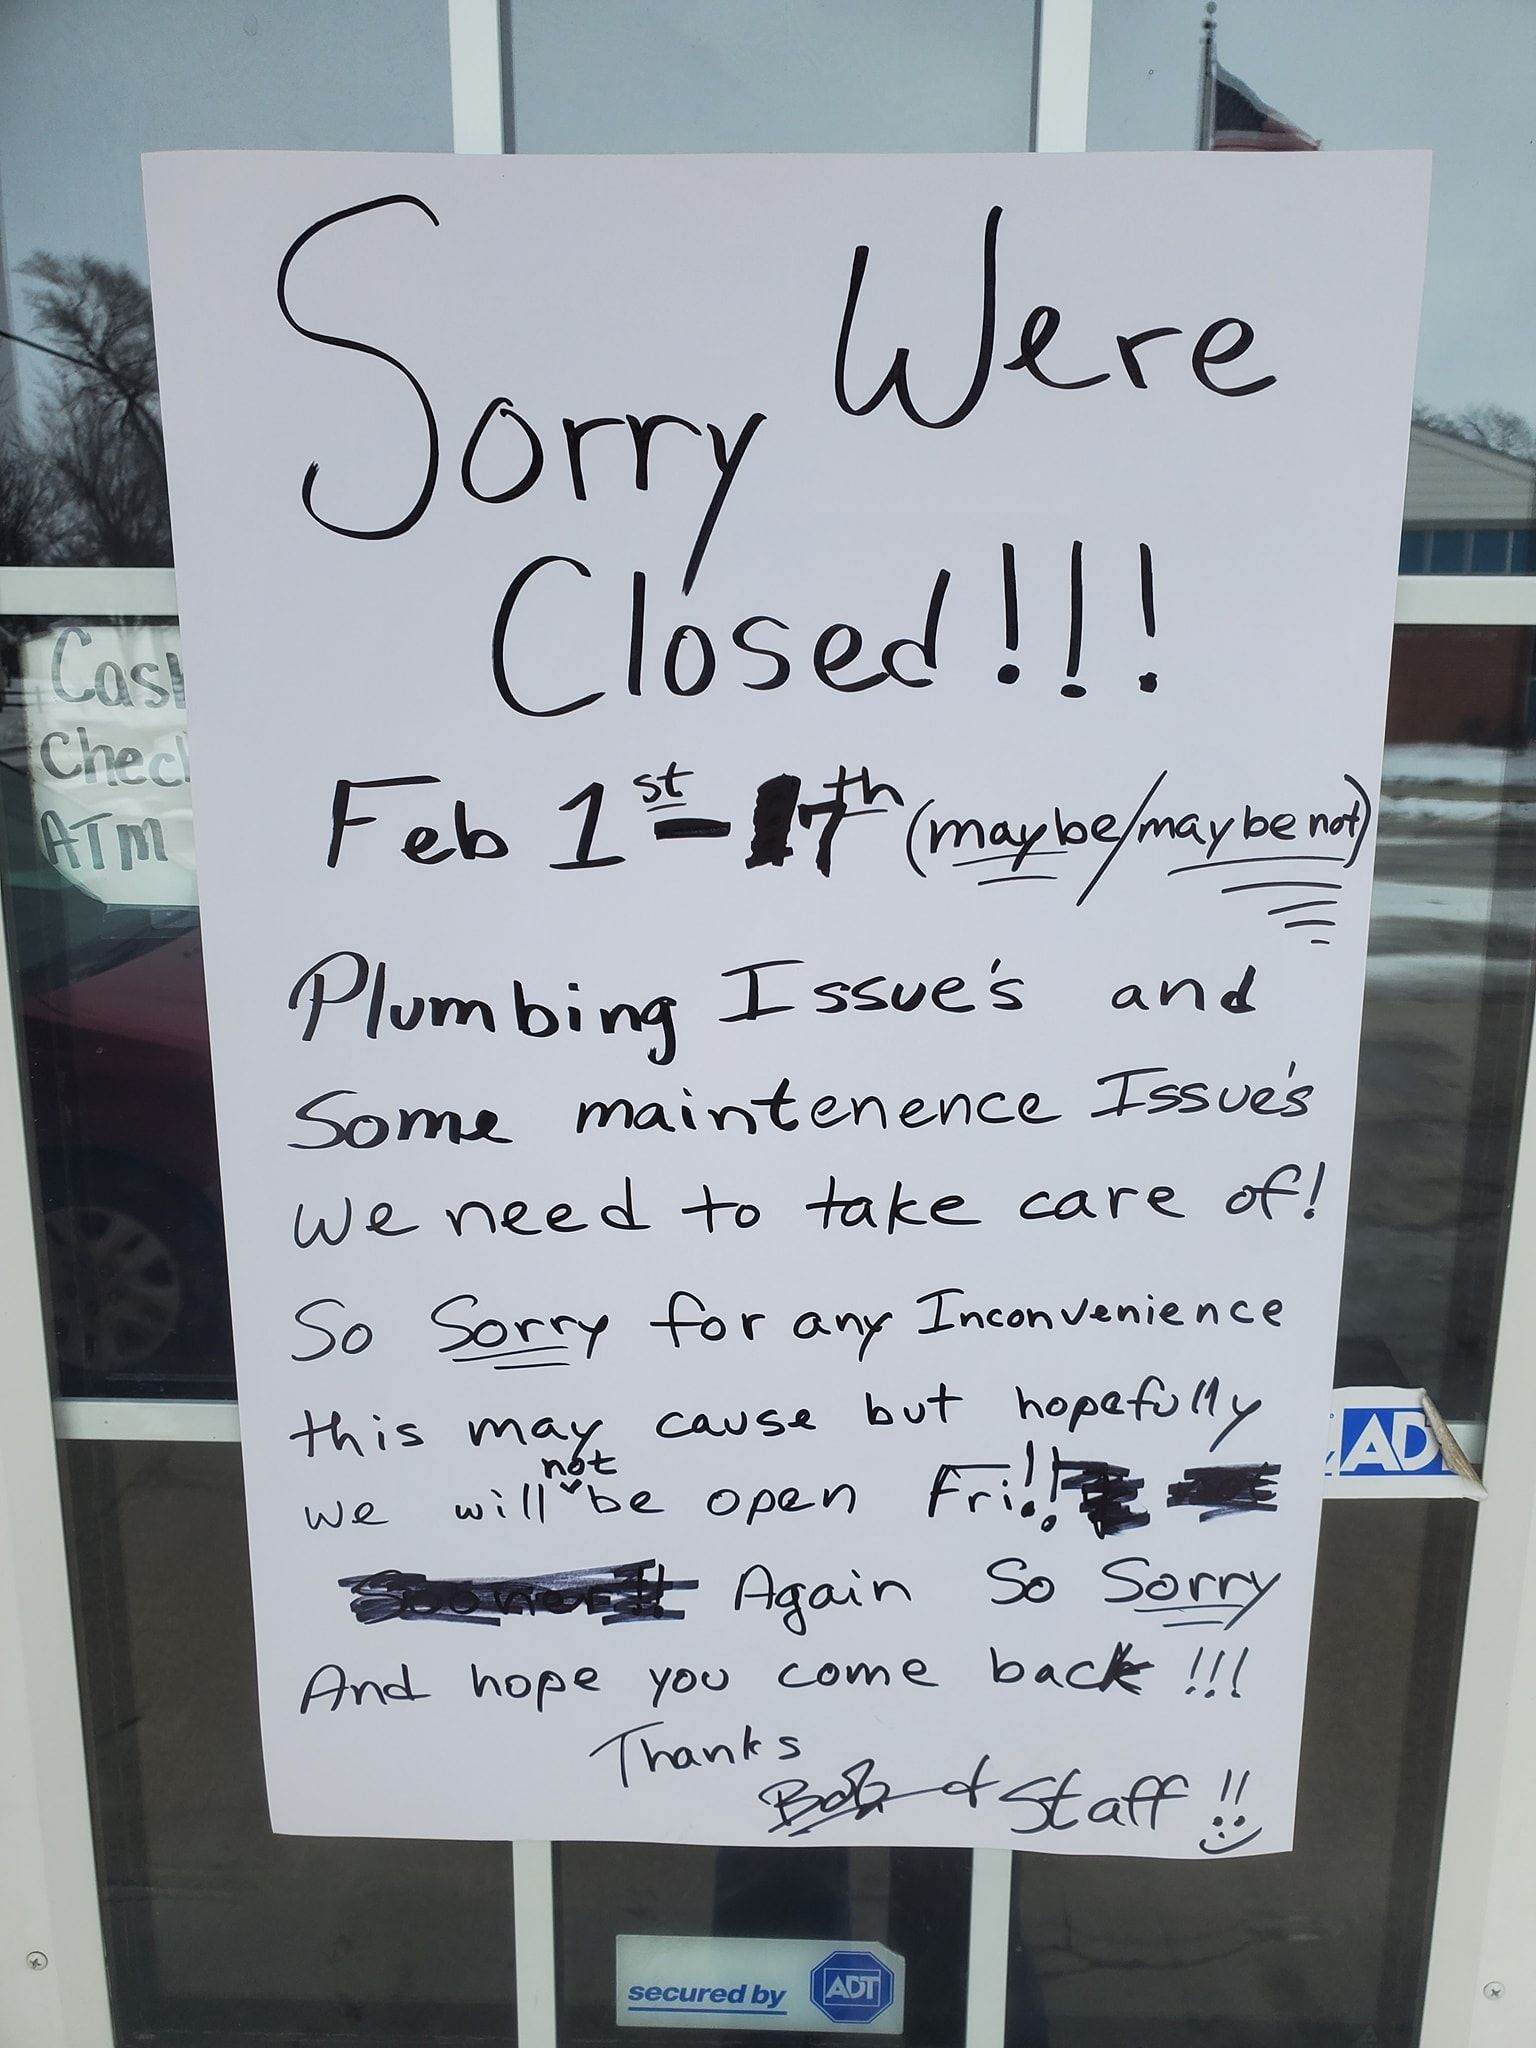 Sorry Were
Closed!!!
Feb 1st - 17th (maybe/maybe not)
Plumbing Issue's and
Some maintenence Issue's
we need to take care of!
So Sorry for any Inconvenience
this may cause but hopefully
we will not be open Fri!!
Sooner!! Again So Sorry
And hope you come back !!!
Thanks
Bob & Staff !!
Cash
Check
ATM
AD
secured by ADT